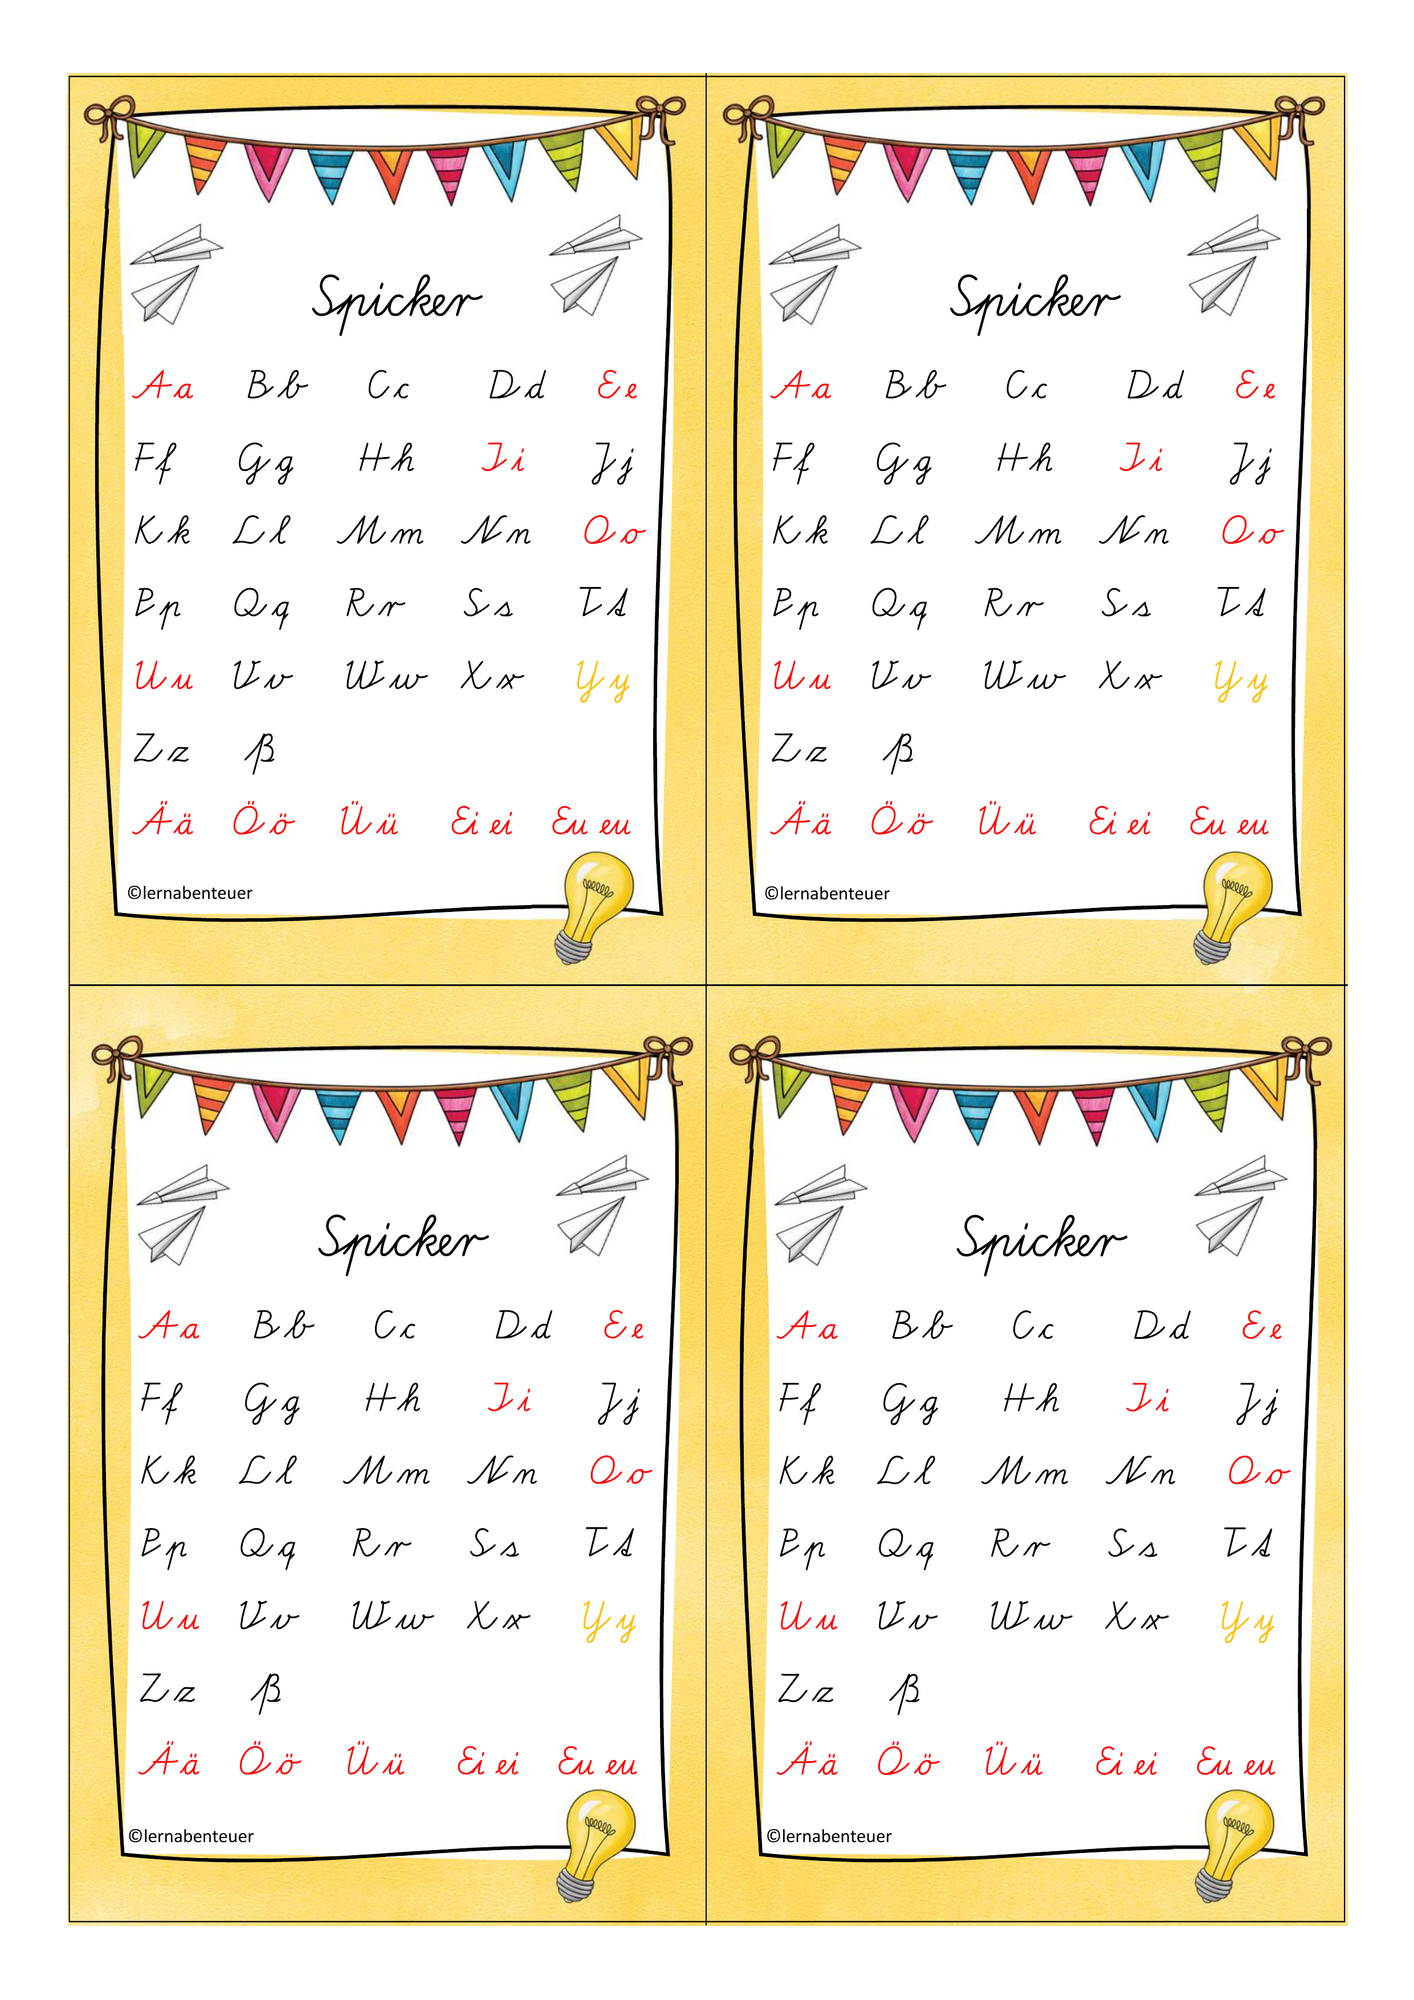 Spicker
Aa Bb Cc Dd Ee
Ff Gg Hh Ii Jj
Kk Ll Mm Nn Oo
Pp Qq Rr Ss Tt
Uu Vv Ww Xx Yy
Zz ß
Ää Öö Üü Ei ei Eu eu
©lernabenteuer
Spicker
Aa Bb Cc Dd Ee
Ff Gg Hh Ii Jj
Kk Ll Mm Nn Oo
Pp Qq Rr Ss Tt
Uu Vv Ww Xx Yy
Zz ß
Ää Öö Üü Ei ei Eu eu
©lernabenteuer
Spicker
Aa Bb Cc Dd Ee
Ff Gg Hh Ii Jj
Kk Ll Mm Nn Oo
Pp Qq Rr Ss Tt
Uu Vv Ww Xx Yy
Zz ß
Ää Öö Üü Ei ei Eu eu
©lernabenteuer
Spicker
Aa Bb Cc Dd Ee
Ff Gg Hh Ii Jj
Kk Ll Mm Nn Oo
Pp Qq Rr Ss Tt
Uu Vv Ww Xx Yy
Zz ß
Ää Öö Üü Ei ei Eu eu
©lernabenteuer